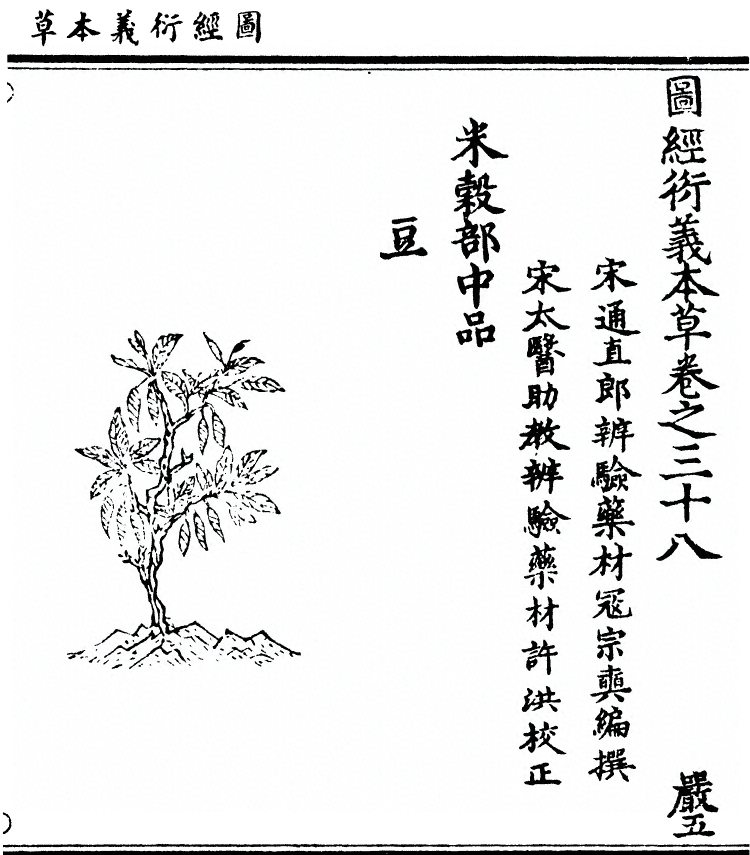 圖經衍義本草
圖經衍義本草卷之三十八
嚴五
宋通直郎辨驗藥材冦宗奭編撰
宋太醫助教辨驗藥材許洪校正
米穀部中品
豆